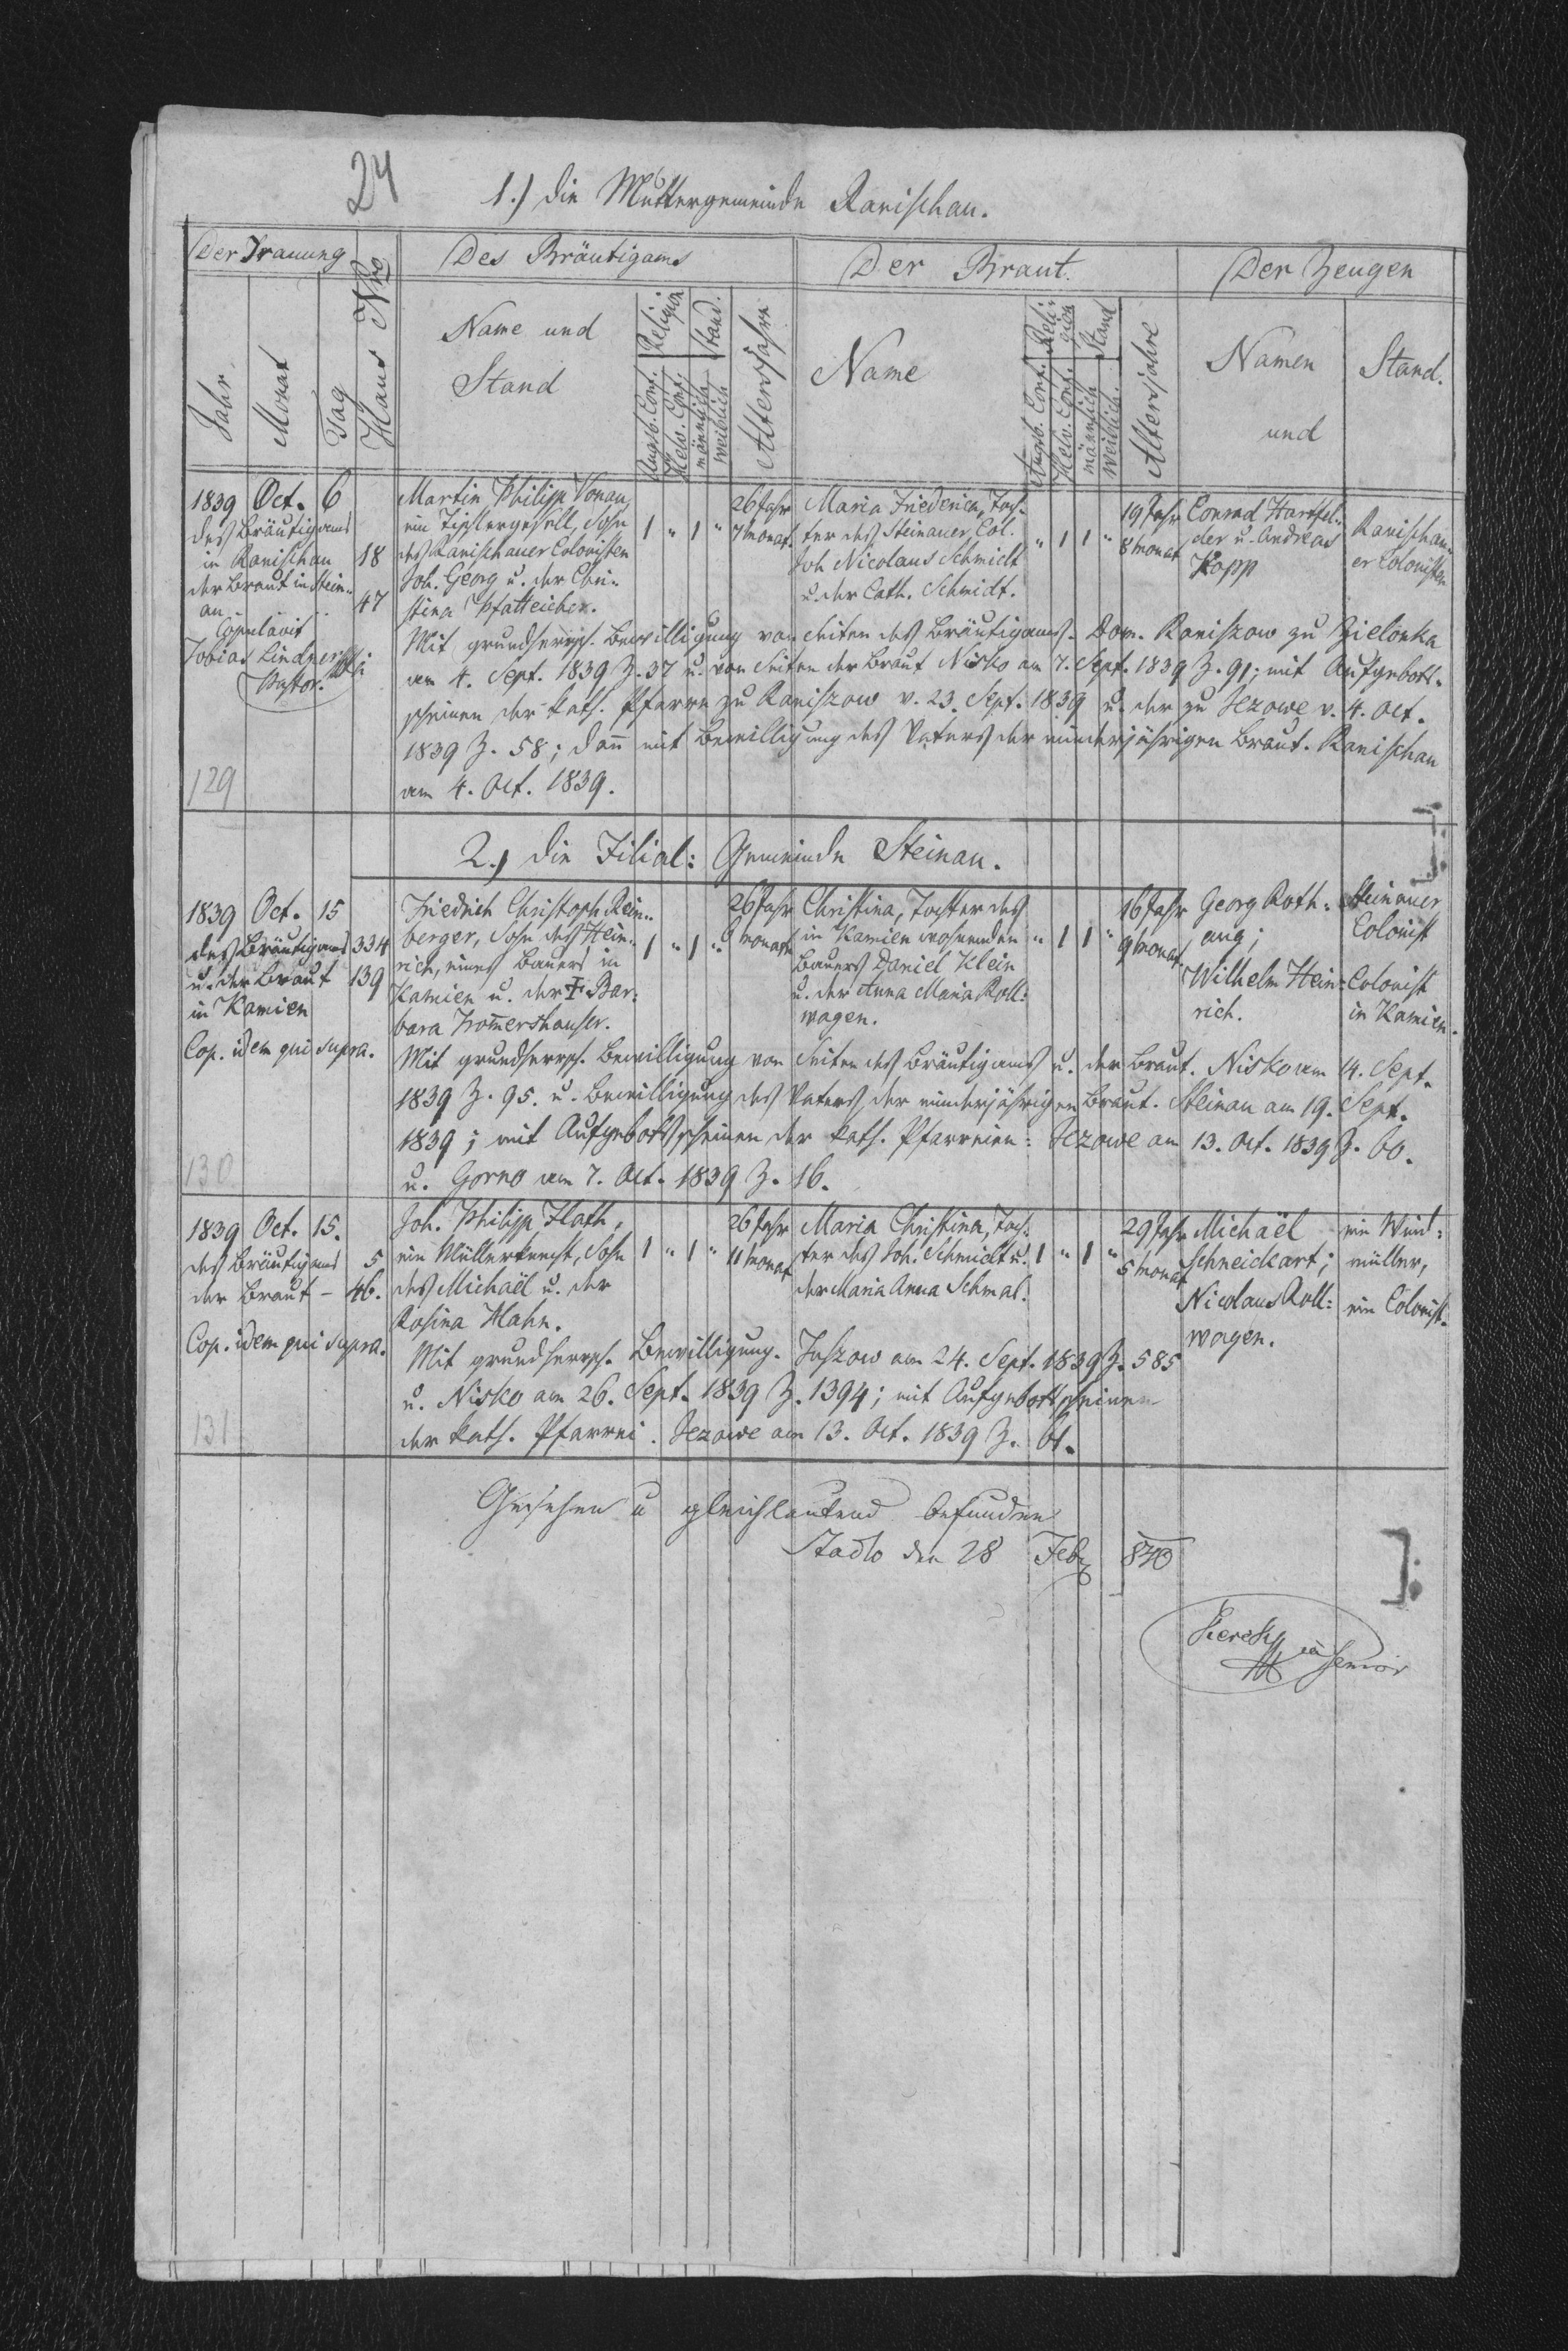 24
1.) die Muttergemeinde Ranischau.
Der Trauung
Haus Nro
Des Bräutigams
Der Braut.
Der Zeugen
Jahr.
Monat
Tag
Name und
Stand
Religion
Augsb. Conf.
Helv. Conf.
Stand.
männlich
weiblich
Altersjahre
Name
Religion
Augsb. Conf.
Helv. Conf.
Stand
männlich
weiblich.
Altersjahre
Namen
und
Stand.
1839 Oct. 6
des Bräutigams
in Ranischau 18
der Braut in Stein-
au 47
Copulavit
Tobias Lindner
Pastor.
Martin Philipp Vonau,
ein Tischlergesell, Sohn
des Ranischauer Colonisten
Joh. Georg u. der Chri-
stina Pfatteicher.
1 " 1 "
26 Jahr
7 Monat.
Maria Friederica, Toch-
ter des Steinauer Col.
Joh Nicolaus Schmidt
u. der Cath. Schmidt.
" 1 1 "
19 Jahr
8 Monat
Conrad Hartfel-
der u. Andreas
Kopp
Ranischau-
er Colonisten
Mit grundherrsch. Bewilligung von Seiten des Bräutigams. Dom. Raniszow zu Zielonka
am 4. Sept. 1839 Z. 37 u. von Seiten der Braut Nisko am 7. Sept. 1839 Z. 91; mit Aufgebott-
scheinen der kath. Pfarre zu Raniszow v. 23. Sept. 1839 u. der zu Jezowe v. 4. Oct.
1839 Z. 58; dann mit Bewilligung des Vaters der minderjährigen Braut. Ranischau
am 4. Oct. 1839.
129
2.) die Filial: Gemeinde Steinau.
1839 Oct. 15
des Bräutigams 334
u. der Braut 139
in Kamien
Cop. idem qui supra.
Friedrich Christoph Rein-
berger, Sohn des Hein-
rich, eines Bauers in
Kamien u. der † Bar-
bara Trom̄ershauser.
1 " 1 "
26 Jahr
Monat
Christina, Tochter des
in Kamien wohnenden
Bauers Daniel Klein
u. der Anna Maria Roll:
wagen.
" 1 1 "
16 Jahr
9 Monat
Georg Roth:
aug;
Wilhelm Hein:
rich.
Steinauer
Colonist
Colonist
in Kamien.
Mit grundherrsch. Bewilligung von Seiten des Bräutigams u. der Braut. Nisko am 14. Sept.
1839 Z. 95. u. Bewilligung des Vaters der minderjährigen Braut. Steinau am 19. Sept.
1839; mit Aufgebottscheinen der kath. Pfarreien: Jezowe am 13. Oct. 1839 Z. 60.
u. Gorno am 7. Oct. 1839 Z. 16.
130
1839 Oct. 15.
des Bräutigams 5
der Braut - 46.
Cop. idem qui supra.
Joh. Philipp Flath,
ein Müllerknecht, Sohn
des Michaël u. der
Rosina Hahn.
1 " 1 "
26 Jahr
11 Monat
Maria Christina, Toch-
ter des Joh. Schmidt u.
der Maria Anna Schmal.
1 " 1 "
29 Jahr
5 Monat
Michaël
Schneickart;
Nicolaus Roll:
wagen.
ein Wind:
müller,
ein Colonist.
Mit grundherrsch. Bewilligung. am 24. Sept. 1839 Z. 585
u. Nisko am 26. Sept. 1839 Z. 1394; mit Aufgebottscheinen
der kath. Pfarrei. Jezowe am 13. Oct. 1839 Z. 61.
131
Gesehen u gleichlautend befunden
Stadlo den 28 Feb 840
Senior